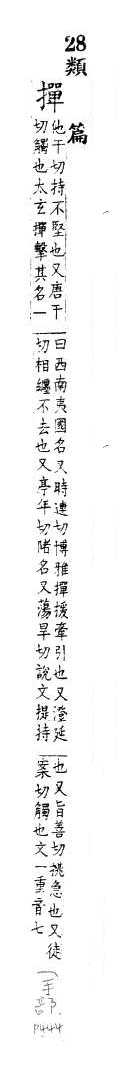 28
類篇
撣
他干切持不堅也又唐干
切觸也太玄撣擊其名一
曰西南夷國名又時連切博雅撣援牽引也又澄延
切相纏不去也又亭年切陼名又蕩旱切說文提持
也又旨善切急也又徒
案切觸也文一重音七
(手部.
P444